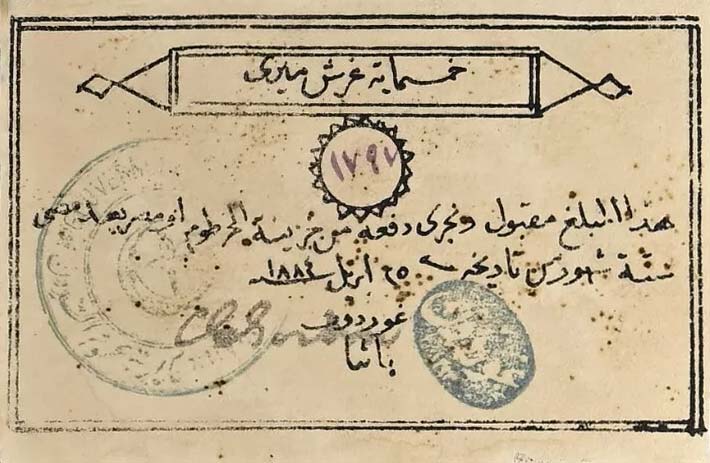 خمسماية غرش ميرى
١٧٩٧
هذا المبلغ مقبول ونجرى دفعه من خزينة الخرطوم او مصر بعد مضى
ستة شهور من تاريخه ٢٥ ابريل ١٨٨٤
غوردون
باشا